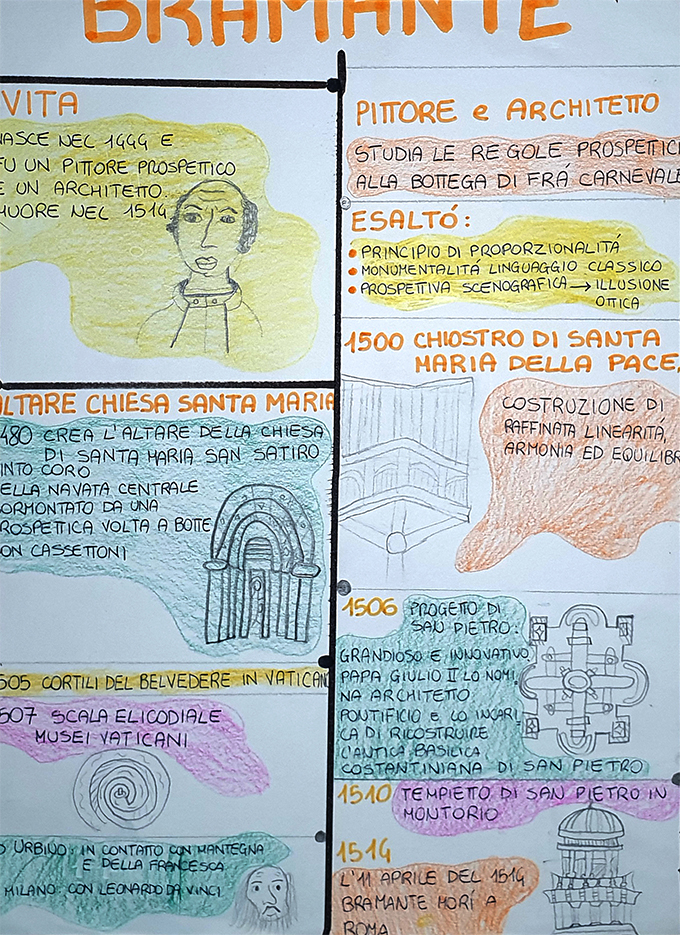 BRAMANTE
VITA
NASCE NEL 1444 E
FU UN PITTORE PROSPETTICO
E UN ARCHITETTO.
MUORE NEL 1514
ALTARE CHIESA SANTA MARIA
480 CREA L'ALTARE DELLA CHIESA
DI SANTA MARIA SAN SATIRO
INTO CORO
ELLA NAVATA CENTRALE
ORMONTATO DA UNA
ROSPETTICA VOLTA A BOTTE
ON CASSETTONI
505 CORTILI DEL BELVEDERE IN VATICANO
507 SCALA ELICODIALE
MUSEI VATICANI
URBINO: IN CONTATTO CON MANTEGNA
E DELLA FRANCESCA
MILANO: CON LEONARDO DA VINCI
PITTORE e ARCHITETTO
STUDIA LE REGOLE PROSPETTICH
ALLA BOTTEGA DI FRÁ CARNEVALE
ESALTÓ:
• PRINCIPIO DI PROPORZIONALITÁ
• MONUMENTALITÁ LINGUAGGIO CLASSICO
• PROSPETTIVA SCENOGRAFICA → ILLUSIONE
OTTICA
1500 CHIOSTRO DI SANTA
MARIA DELLA PACE.
COSTRUZIONE DI
RAFFINATA LINEARITÁ,
ARMONIA ED EQUILIBR
1506 PROGETTO DI
SAN PIETRO:
GRANDIOSO E INNOVATIVO.
PAPA GIULIO II LO NOMI,
NA ARCHITETTO
PONTIFICIO E LO INCARI,
CA DI RICOSTRUIRE
L'ANTICA BASILICA
COSTANTINIANA DI SAN PIETRO
1510 TEMPIETTO DI SAN PIETRO IN
MONTORIO
1514
L'11 APRILE DEL 1514
BRAMANTE MORÍ A
ROMA